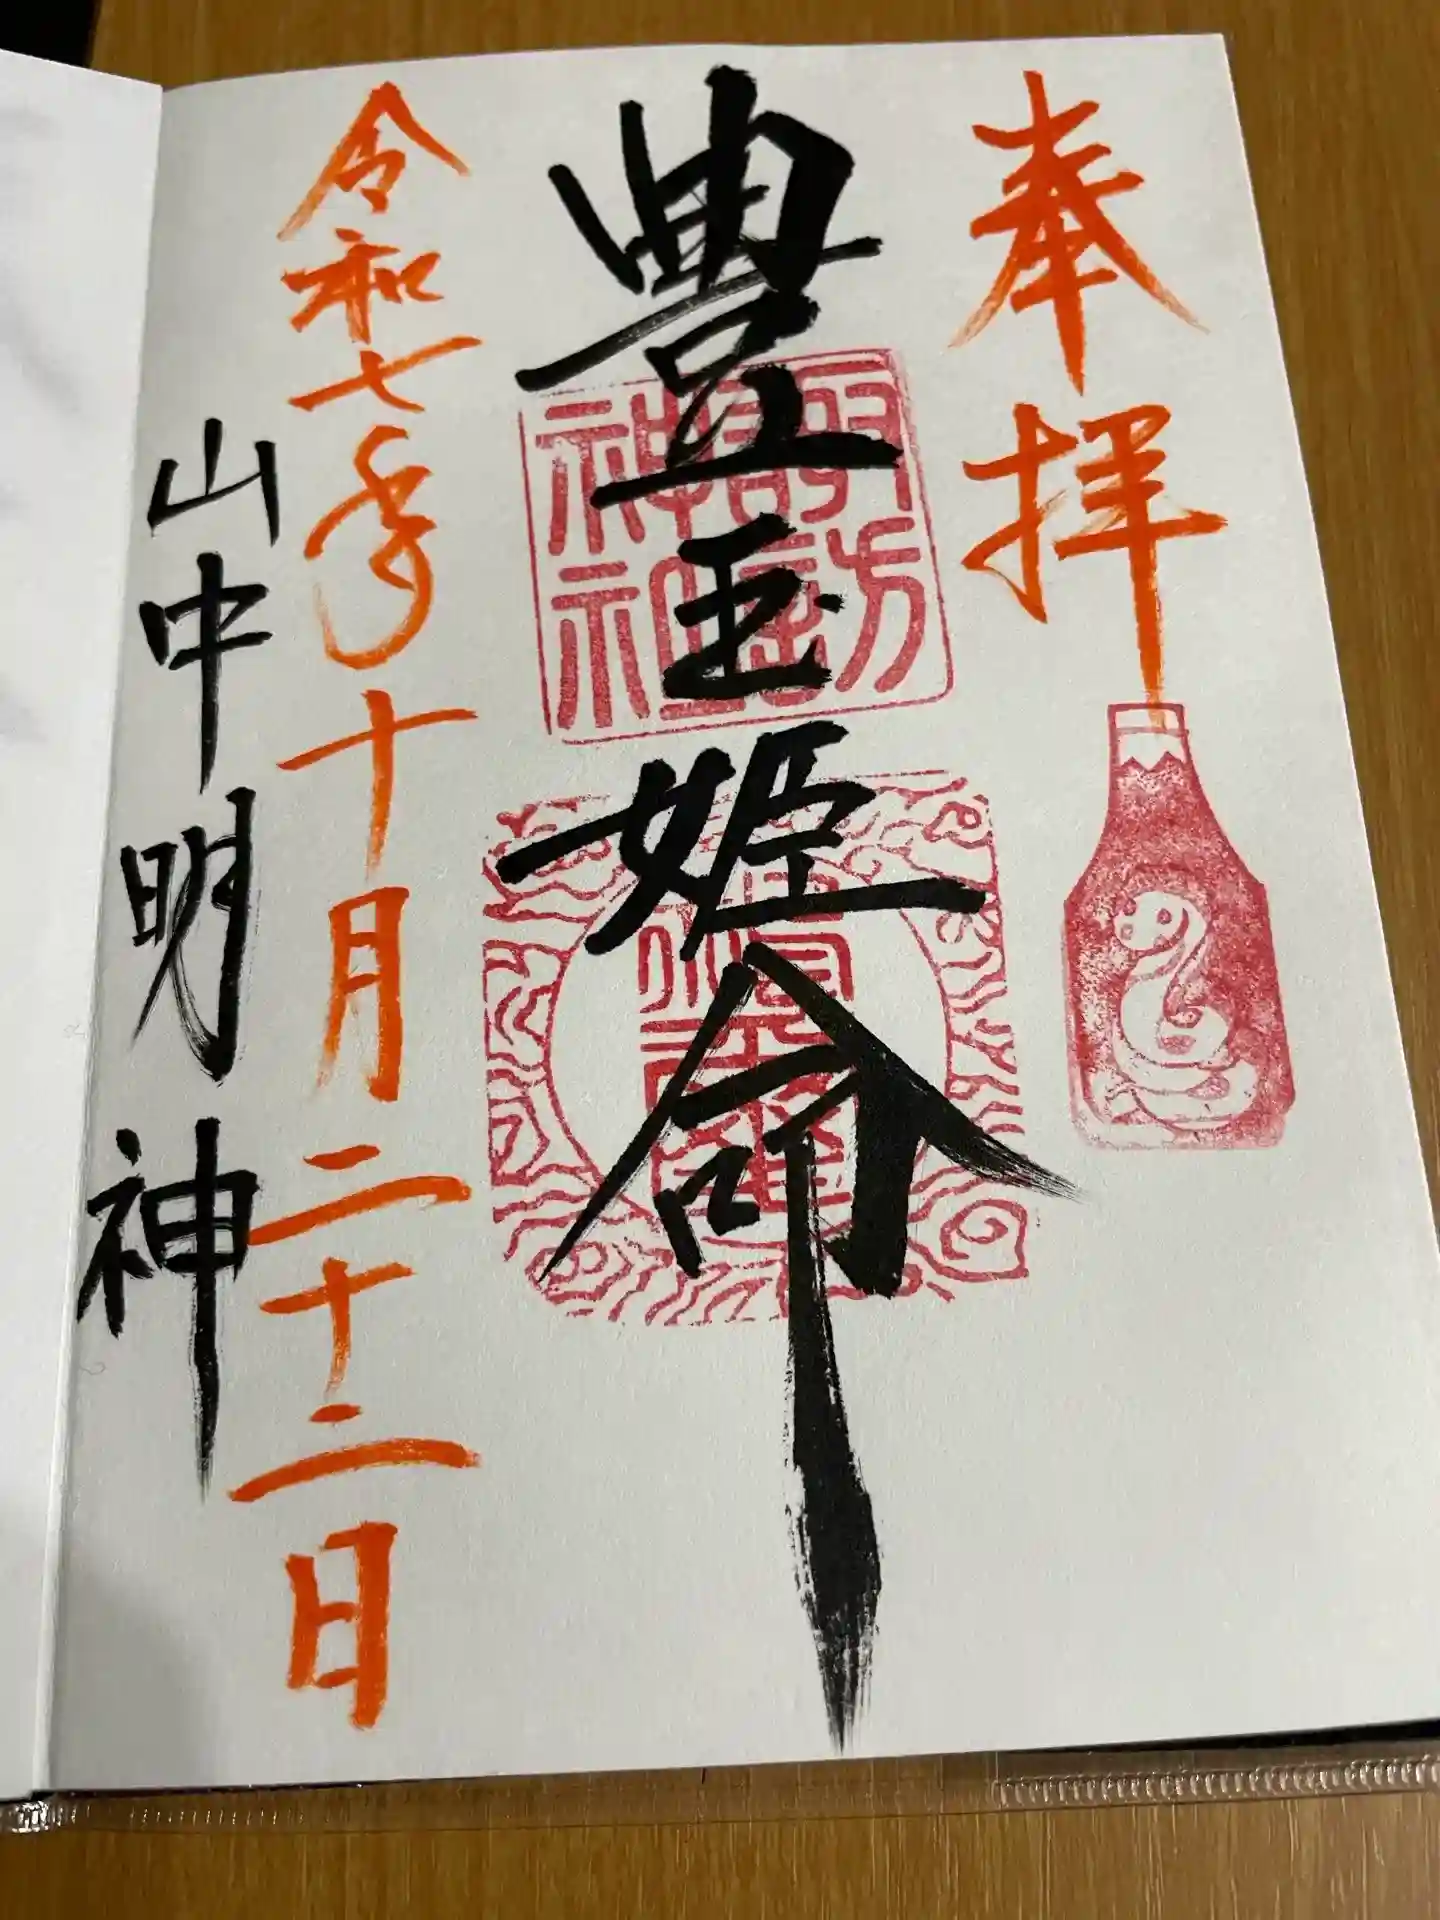 奉拝
豊玉姫命
令和七年十月二十二日
山中明神